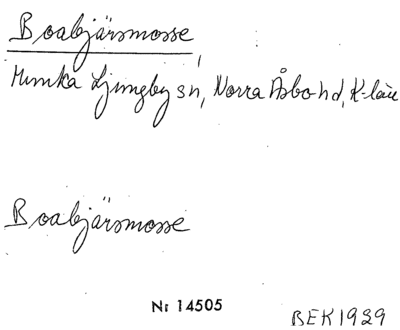 Boabjärsmosse
Munka Ljungby sn, Norra Åsbo hd, K-län
Boabjärsmosse
Nr 14505
BEK 1929